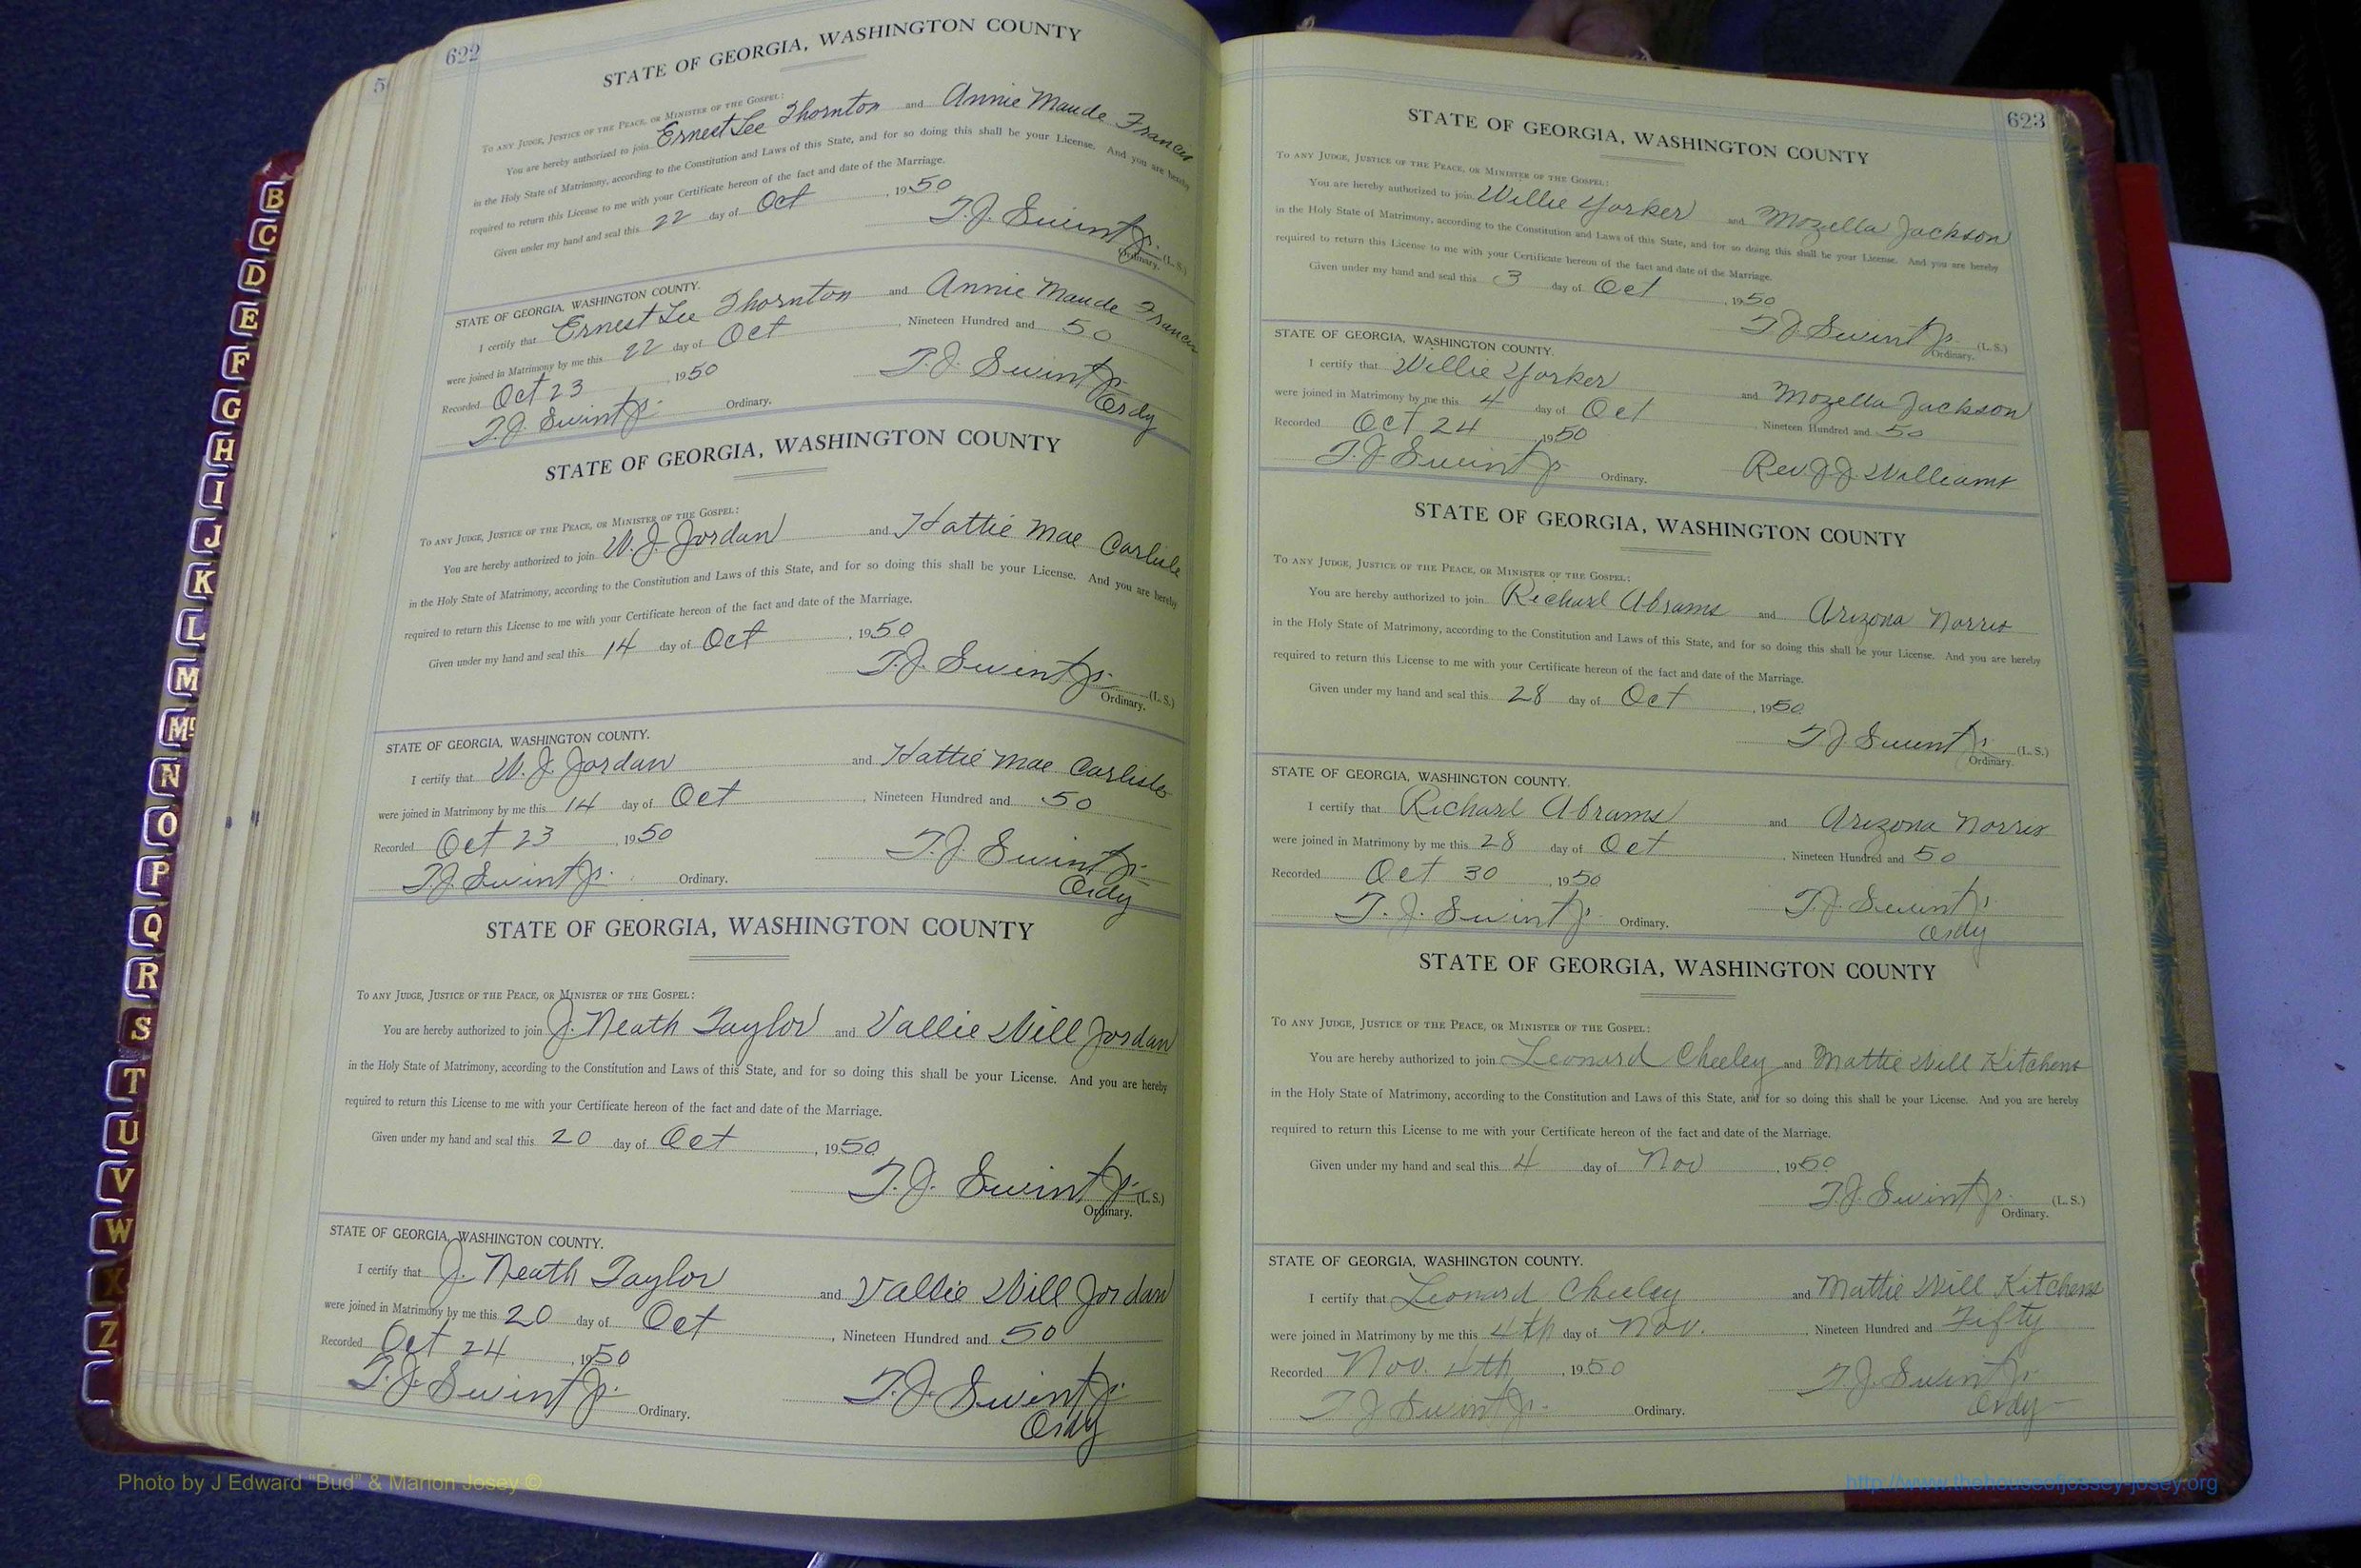 B
C
D
E
F
G
H
I
J
K
L
M
Mc
N
O
P
Q
R
S
T
U
V
W
X
Z
5
622
STATE OF GEORGIA, WASHINGTON COUNTY
TO ANY JUDGE, JUSTICE OF THE PEACE, OR MINISTER OF THE GOSPEL:
You are hereby authorized to join Ernest Lee Thornton and Annie Maude Francis
in the Holy State of Matrimony, according to the Constitution and Laws of this State, and for so doing this shall be your License. And you are hereby
required to return this License to me with your Certificate hereon of the fact and date of the Marriage.
Given under my hand and seal this 22 day of Oct, 1950
T.J. Swint Jr. (L. S.)
Ordinary.
STATE OF GEORGIA, WASHINGTON COUNTY.
I certify that Ernest Lee Thornton and Annie Maude Francis
were joined in Matrimony by me this 22 day of Oct, Nineteen Hundred and 50
Recorded Oct 23, 1950 T.J. Swint Jr.
T.J. Swint Jr. Ordinary. Ordy
STATE OF GEORGIA, WASHINGTON COUNTY
TO ANY JUDGE, JUSTICE OF THE PEACE, OR MINISTER OF THE GOSPEL:
You are hereby authorized to join W. J. Jordan and Hattie Mae Carlisle
in the Holy State of Matrimony, according to the Constitution and Laws of this State, and for so doing this shall be your License. And you are hereby
required to return this License to me with your Certificate hereon of the fact and date of the Marriage.
Given under my hand and seal this 14 day of Oct, 1950
T.J. Swint Jr. (L. S.)
Ordinary.
STATE OF GEORGIA, WASHINGTON COUNTY.
I certify that W. J. Jordan and Hattie Mae Carlisle
were joined in Matrimony by me this 14 day of Oct Nineteen Hundred and 50
Recorded Oct 23, 1950 T.J. Swint Jr.
T.J. Swint Jr. Ordinary. Ordy
STATE OF GEORGIA, WASHINGTON COUNTY
TO ANY JUDGE, JUSTICE OF THE PEACE, OR MINISTER OF THE GOSPEL:
You are hereby authorized to join J. Neath Taylor and Vallie Will Jordan
in the Holy State of Matrimony, according to the Constitution and Laws of this State, and for so doing this shall be your License. And you are hereby
required to return this License to me with your Certificate hereon of the fact and date of the Marriage.
Given under my hand and seal this 20 day of Oct, 1950
T.J. Swint Jr. (L. S.)
Ordinary.
STATE OF GEORGIA, WASHINGTON COUNTY.
I certify that J. Neath Taylor and Vallie Will Jordan
were joined in Matrimony by me this 20 day of Oct, Nineteen Hundred and 50
Recorded Oct 24, 1950 T.J. Swint Jr.
T.J. Swint Jr. Ordinary. Ordy
623
STATE OF GEORGIA, WASHINGTON COUNTY
TO ANY JUDGE, JUSTICE OF THE PEACE, OR MINISTER OF THE GOSPEL:
You are hereby authorized to join Willie Yorker and Mozella Jackson
in the Holy State of Matrimony, according to the Constitution and Laws of this State, and for so doing this shall be your License. And you are hereby
required to return this License to me with your Certificate hereon of the fact and date of the Marriage.
Given under my hand and seal this 3 day of Oct, 1950
T J Swint Jr. (L. S.)
Ordinary.
STATE OF GEORGIA, WASHINGTON COUNTY.
I certify that Willie Yorker and Mozella Jackson
were joined in Matrimony by me this 4 day of Oct Nineteen Hundred and 50
Recorded Oct 24, 1950
T.J Swint Jr Ordinary. Rev. J. J. Williams
STATE OF GEORGIA, WASHINGTON COUNTY
TO ANY JUDGE, JUSTICE OF THE PEACE, OR MINISTER OF THE GOSPEL:
You are hereby authorized to join Richard Abrams and Arizona Norris
in the Holy State of Matrimony, according to the Constitution and Laws of this State, and for so doing this shall be your License. And you are hereby
required to return this License to me with your Certificate hereon of the fact and date of the Marriage.
Given under my hand and seal this 28 day of Oct, 1950
T J Swint Jr. (L. S.)
Ordinary.
STATE OF GEORGIA, WASHINGTON COUNTY.
I certify that Richard Abrams and Arizona Norris
were joined in Matrimony by me this 28 day of Oct, Nineteen Hundred and 50
Recorded Oct 30, 1950 T.J. Swint Jr.
T. J. Swint Jr. Ordinary. Ordy
STATE OF GEORGIA, WASHINGTON COUNTY
TO ANY JUDGE, JUSTICE OF THE PEACE, OR MINISTER OF THE GOSPEL:
You are hereby authorized to join Leonard Cheeley and Mattie Will Kitchens
in the Holy State of Matrimony, according to the Constitution and Laws of this State, and for so doing this shall be your License. And you are hereby
required to return this License to me with your Certificate hereon of the fact and date of the Marriage.
Given under my hand and seal this 4 day of Nov, 1950
T.J. Swint Jr. (L. S.)
Ordinary.
STATE OF GEORGIA, WASHINGTON COUNTY.
I certify that Leonard Cheeley and Mattie Will Kitchens
were joined in Matrimony by me this 4th day of Nov., Nineteen Hundred and Fifty
Recorded Nov. 4th, 1950 T.J. Swint Jr.
T J Swint Jr. Ordinary. Ordy
Photo by J Edward "Bud" & Marion Josey ©
http://www.thehouseofjossey-josey.org